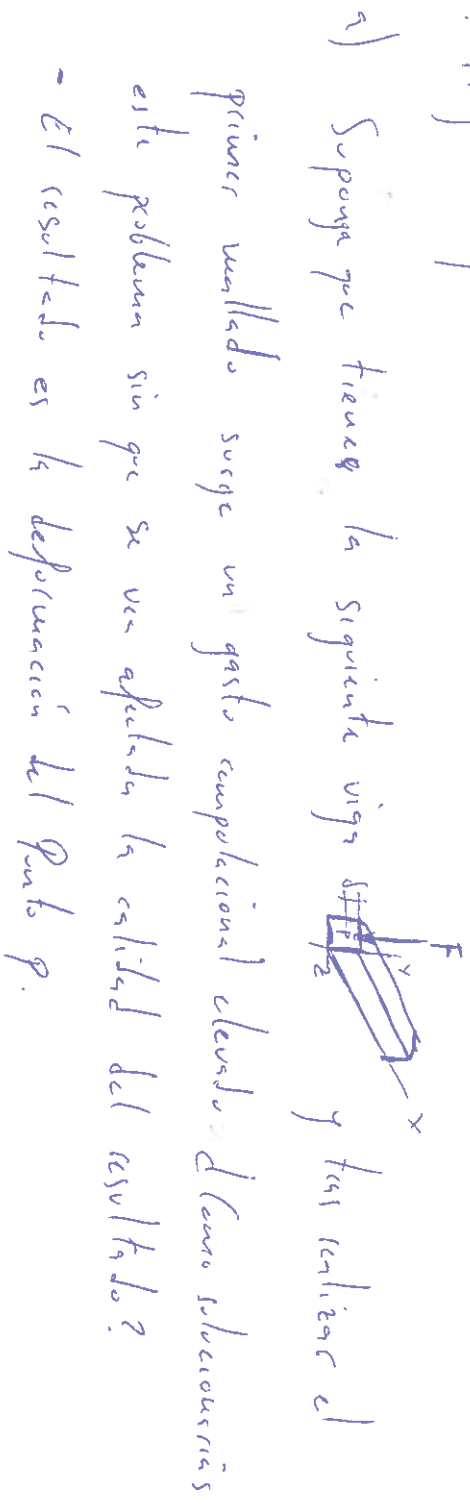 a) Suponga que tienes la siguiente viga F P Y Z X y tras realizar el
primer mallado surge un gasto computacional elevado ¿Como solucionarías
este problema sin que se vea afectada la calidad del resultado?
- El resultado es la deformación del Punto P.